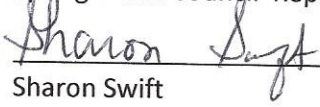 Sharon Swift
Sharon Swift